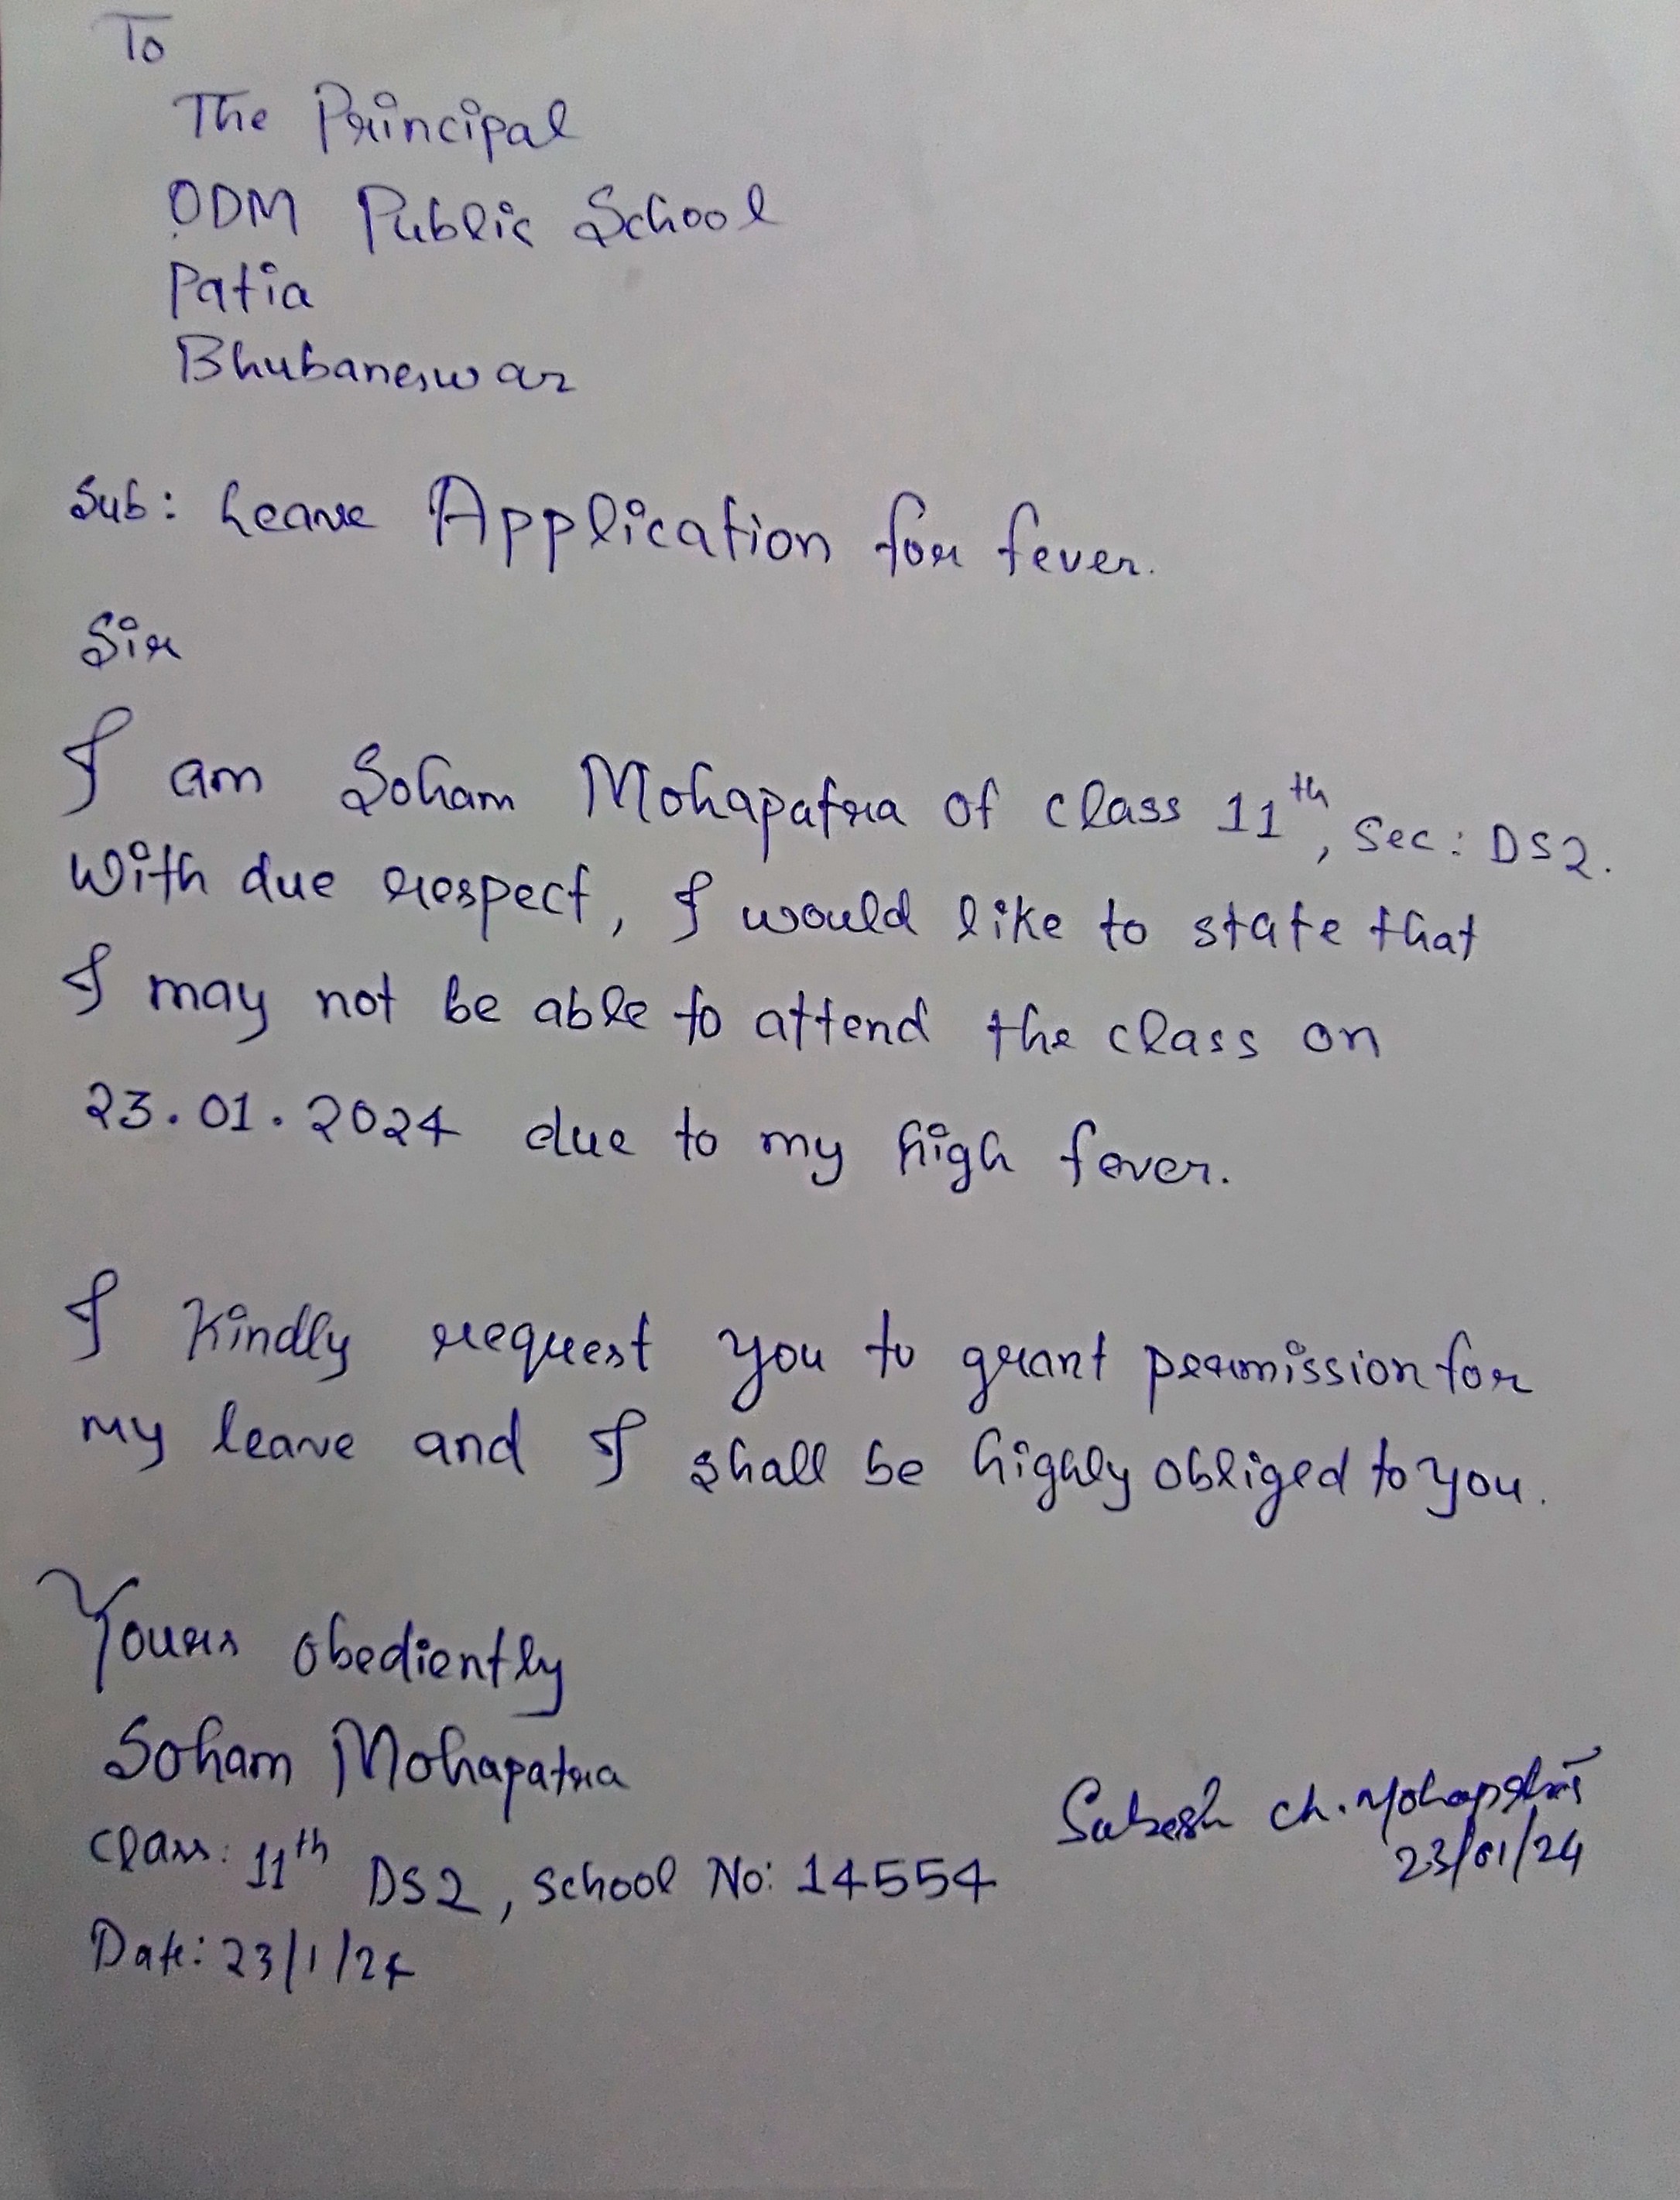 To
The Principal
ODM Public School
Patia
Bhubaneswar
Sub: Leave Application for fever.
Sir
I am Soham Mohapatra of class 11th, Sec: DS2.
With due respect, I would like to state that
I may not be able to attend the class on
23.01.2024 due to my high fever.
I Kindly request you to grant permission for
my leave and I shall be highly obliged to you.
Yours obediently
Soham Mohapatra
Class: 11th DS2, School No: 14554
Date: 23/1/24
Ch. Mohapatra
23/01/24